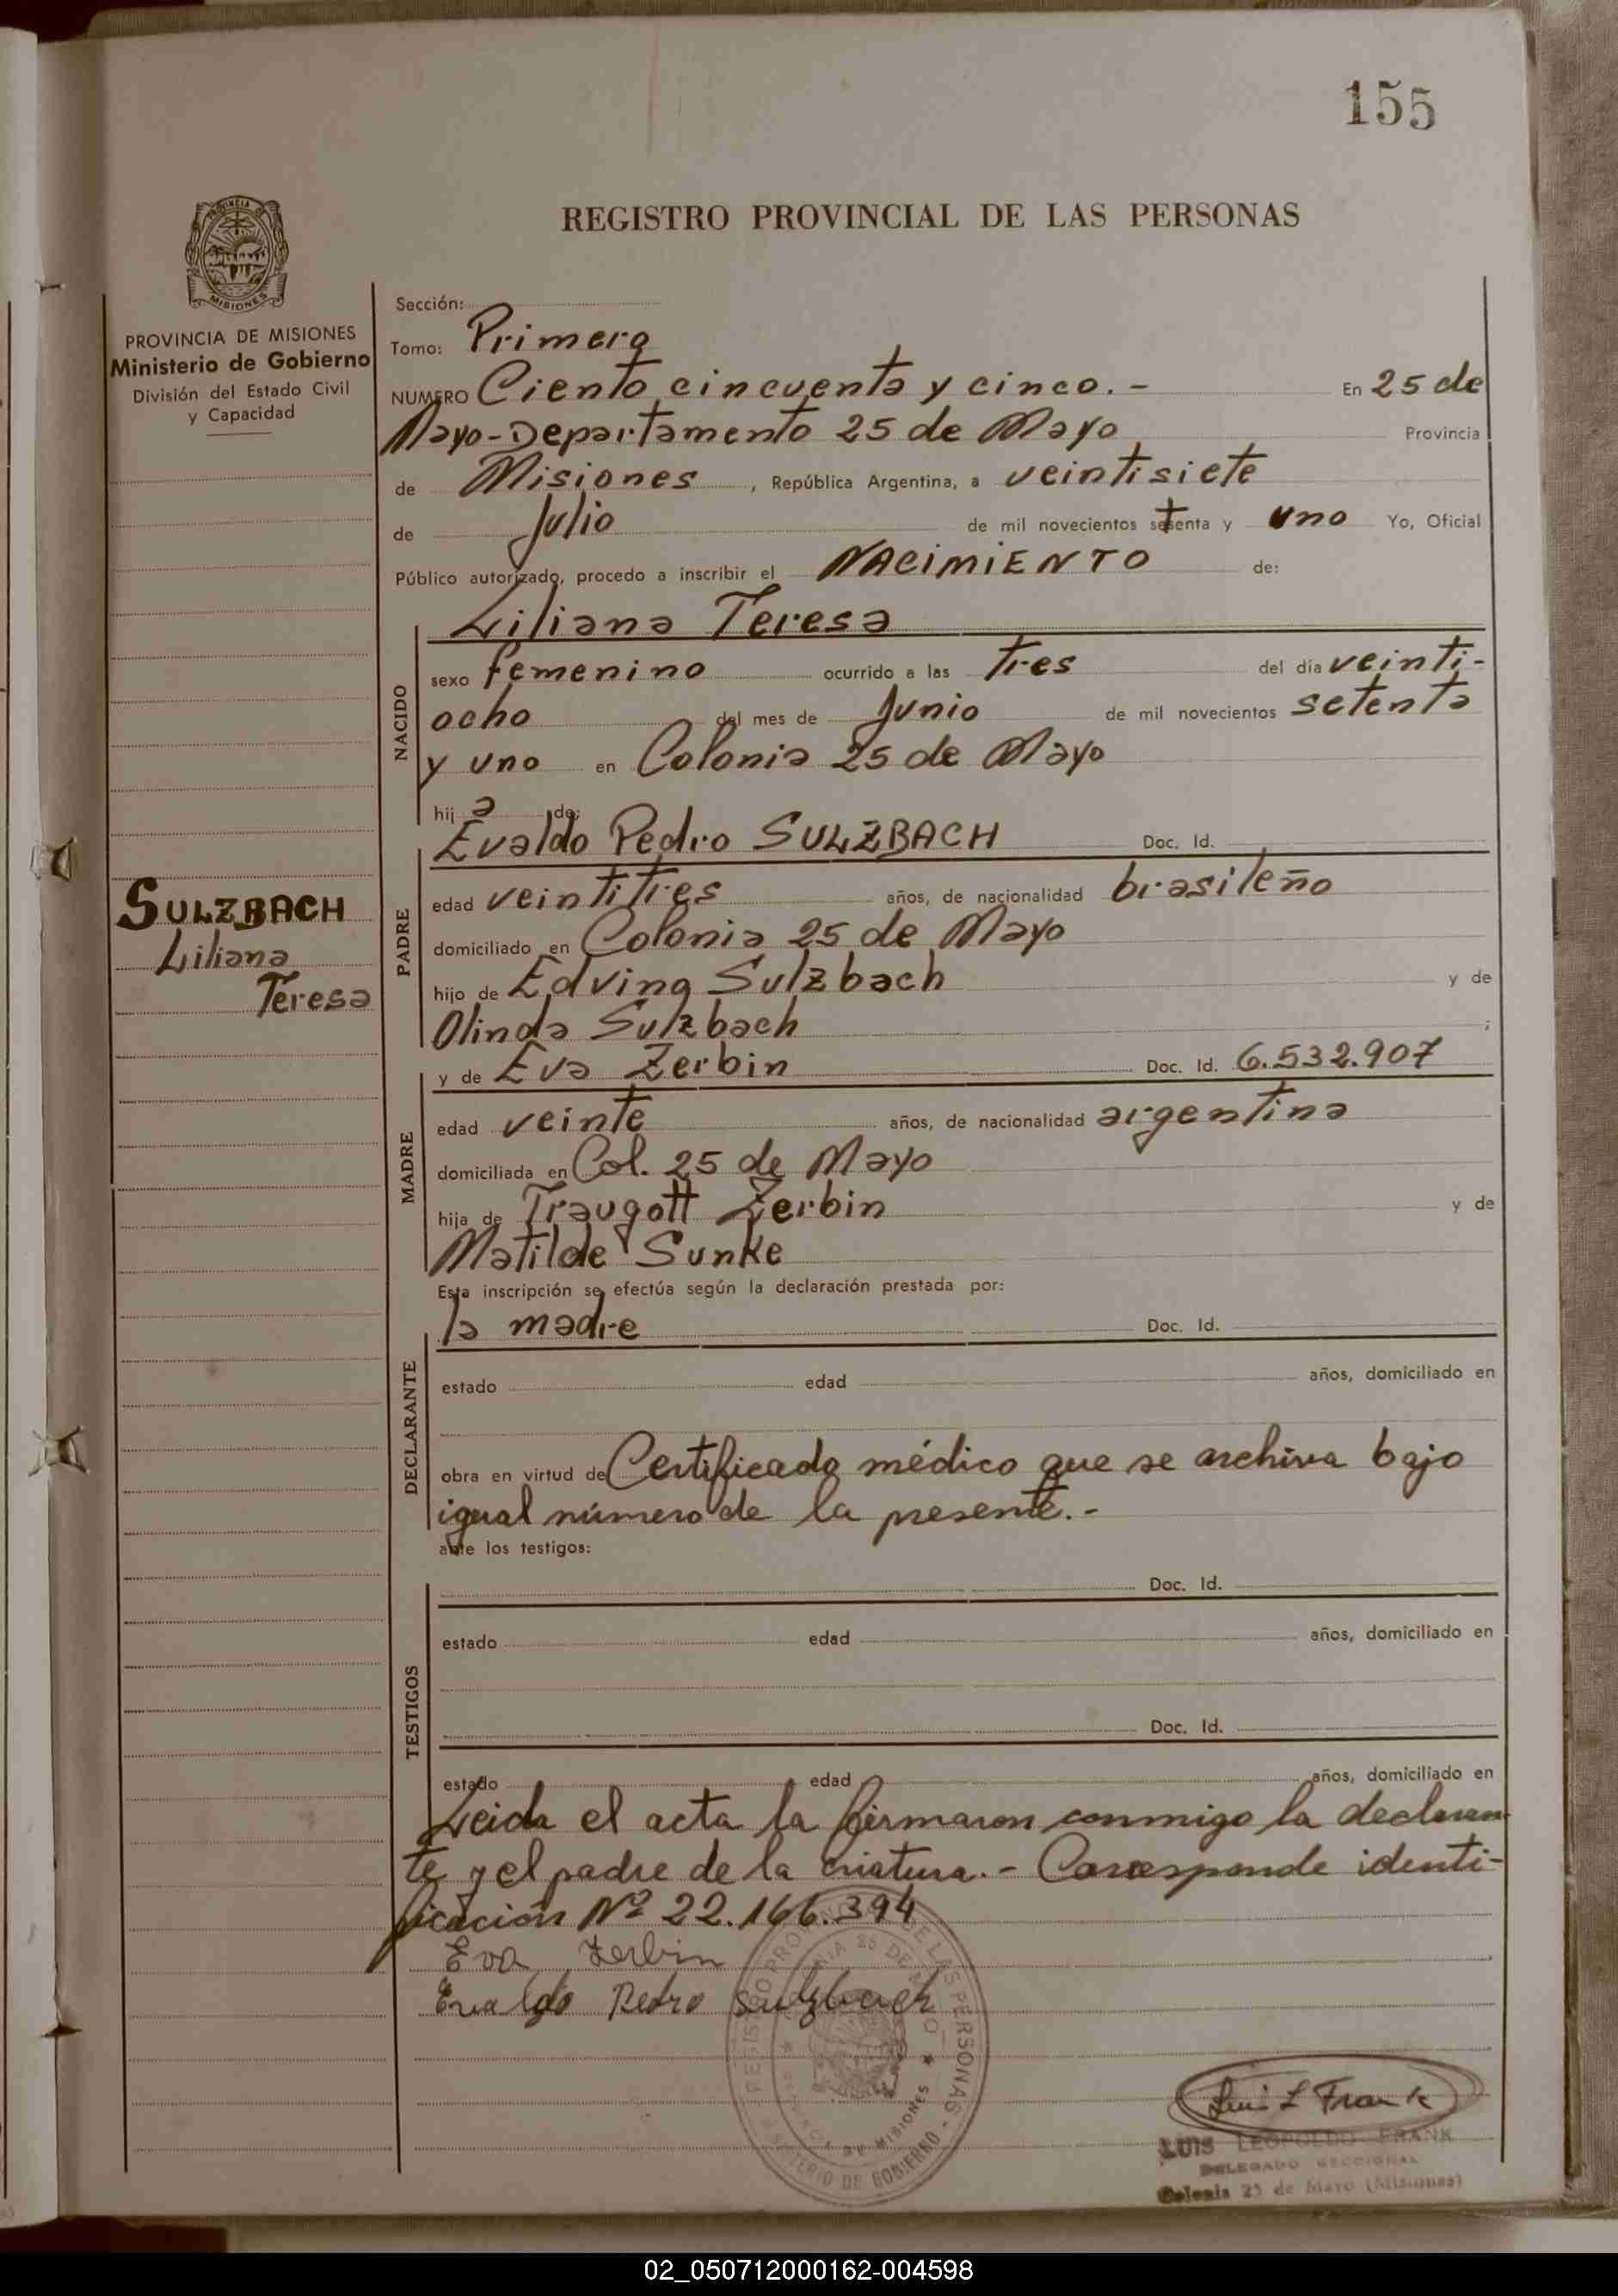 155
REGISTRO PROVINCIAL DE LAS PERSONAS
PROVINCIA DE MISIONES
PROVINCIA DE MISIONES
Ministerio de Gobierno
División del Estado Civil
y Capacidad
SULZBACH
Liliana
Teresa
Sección:
Tomo: Primero
NUMERO Ciento cincuenta y cinco.- En 25 de
Mayo-Departamento 25 de Mayo Provincia
de Misiones, República Argentina, a veintisiete
de Julio de mil novecientos setenta y uno Yo, Oficial
Público autorizado, procedo a inscribir el NACIMIENTO de:
NACIDO
Liliana Teresa
sexo femenino ocurrido a las tres del día veinti-
ocho del mes de Junio de mil novecientos setenta
y uno en Colonia 25 de Mayo
hija de:
PADRE
Evaldo Pedro SULZBACH Doc. Id.
edad veintitres años, de nacionalidad brasileño
domiciliado en Colonia 25 de Mayo
hijo de Edving Sulzbach y de
Olinda Sulzbach ;
MADRE
y de Eva Zerbin Doc. Id. 6.532.907
edad veinte años, de nacionalidad argentina
domiciliada en Col. 25 de Mayo
hija de Traugott Zerbin y de
Matilde Sunke
Esta inscripción se efectúa según la declaración prestada por:
DECLARANTE
la madre Doc. Id.
estado edad años, domiciliado en
obra en virtud de Certificado médico que se archiva bajo
igual número de la presente.-
ante los testigos:
TESTIGOS
Doc. Id.
estado edad años, domiciliado en
Doc. Id.
estado edad años, domiciliado en
Leida el acta la firmaron conmigo la declaran-
te y el padre de la criatura.- Corresponde identi-
ficación Nº 22.166.394
Eva Zerbin
Evaldo Pedro Sulzbach
REGISTRO PROVINCIAL DE LAS PERSONAS - MINISTERIO DE GOBIERNO -
COLONIA 25 DE MAYO ★ PROVINCIA DE MISIONES ★
Luis L Frank
LUIS LEOPOLDO FRANK
DELEGADO SECCIONAL
Colonia 25 de Mayo (Misiones)
02_050712000162-004598